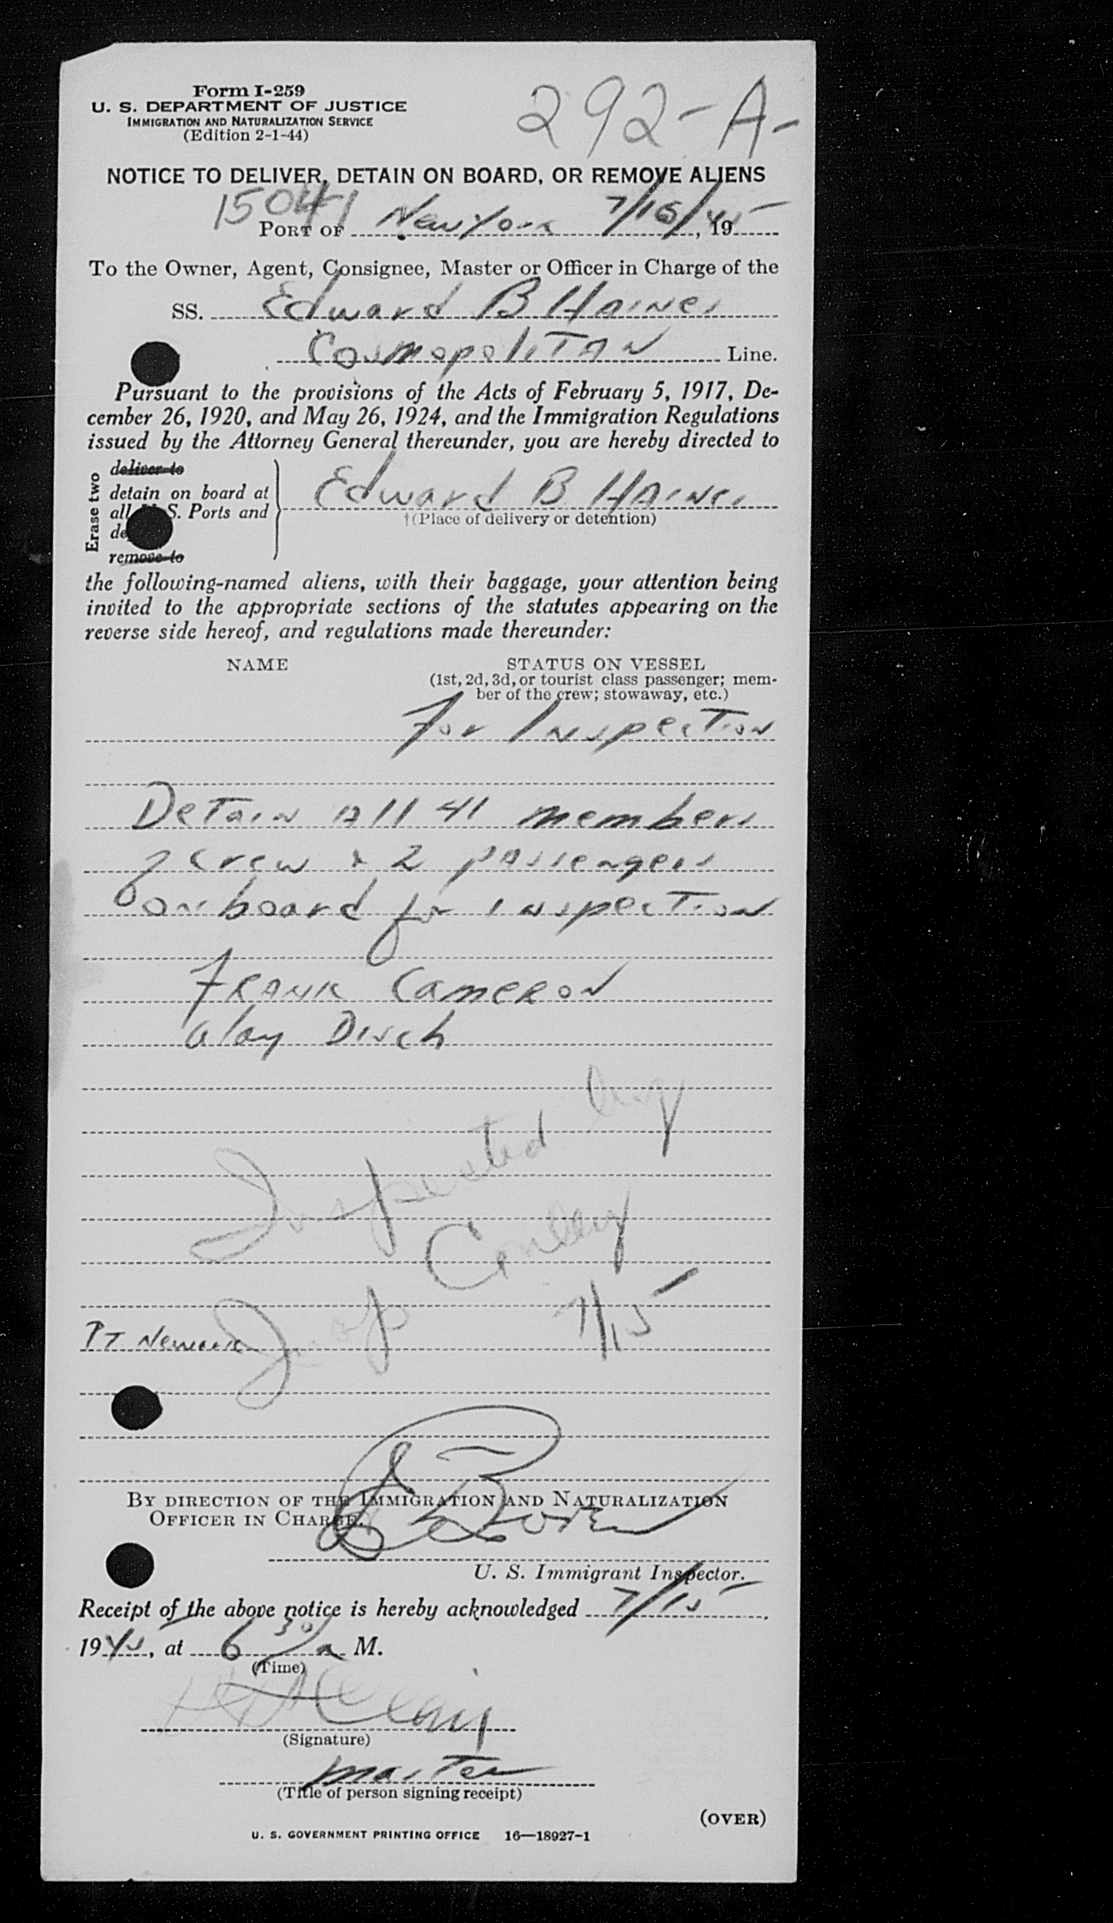 Form I-259
292-A-
U. S. DEPARTMENT OF JUSTICE
IMMIGRATION AND NATURALIZATION SERVICE
(Edition 2-1-44)
NOTICE TO DELIVER, DETAIN ON BOARD, OR REMOVE ALIENS
15041
PORT OF New York 7/15/, 1945
To the Owner, Agent, Consignee, Master or Officer in Charge of the
SS. Edward B Haines
Cosmopolitan Line.
Pursuant to the provisions of the Acts of February 5, 1917, De-
cember 26, 1920, and May 26, 1924, and the Immigration Regulations
issued by the Attorney General thereunder, you are hereby directed to
Erase two
deliver to
detain on board at
all U. S. Ports and
de
remove to
Edward B Haines
†(Place of delivery or detention)
the following-named aliens, with their baggage, your attention being
invited to the appropriate sections of the statutes appearing on the
reverse side hereof, and regulations made thereunder:
NAME
STATUS ON VESSEL
(1st, 2d, 3d, or tourist class passenger; mem-
ber of the crew; stowaway, etc.)
For Inspection
Detain all 41 members
of crew & 2 passengers
on board for inspection
Frank Cameron
Olay Disch
Inspected by
Conley
Insp 7/15
PT Newark
BY DIRECTION OF THE IMMIGRATION AND NATURALIZATION
OFFICER IN CHARGE.
U. S. Immigrant Inspector.
Receipt of the above notice is hereby acknowledged 7/15,
1945, at 6 30 a M.
(Time)
(Signature)
master
(Title of person signing receipt)
(OVER)
U. S. GOVERNMENT PRINTING OFFICE 16—18927-1